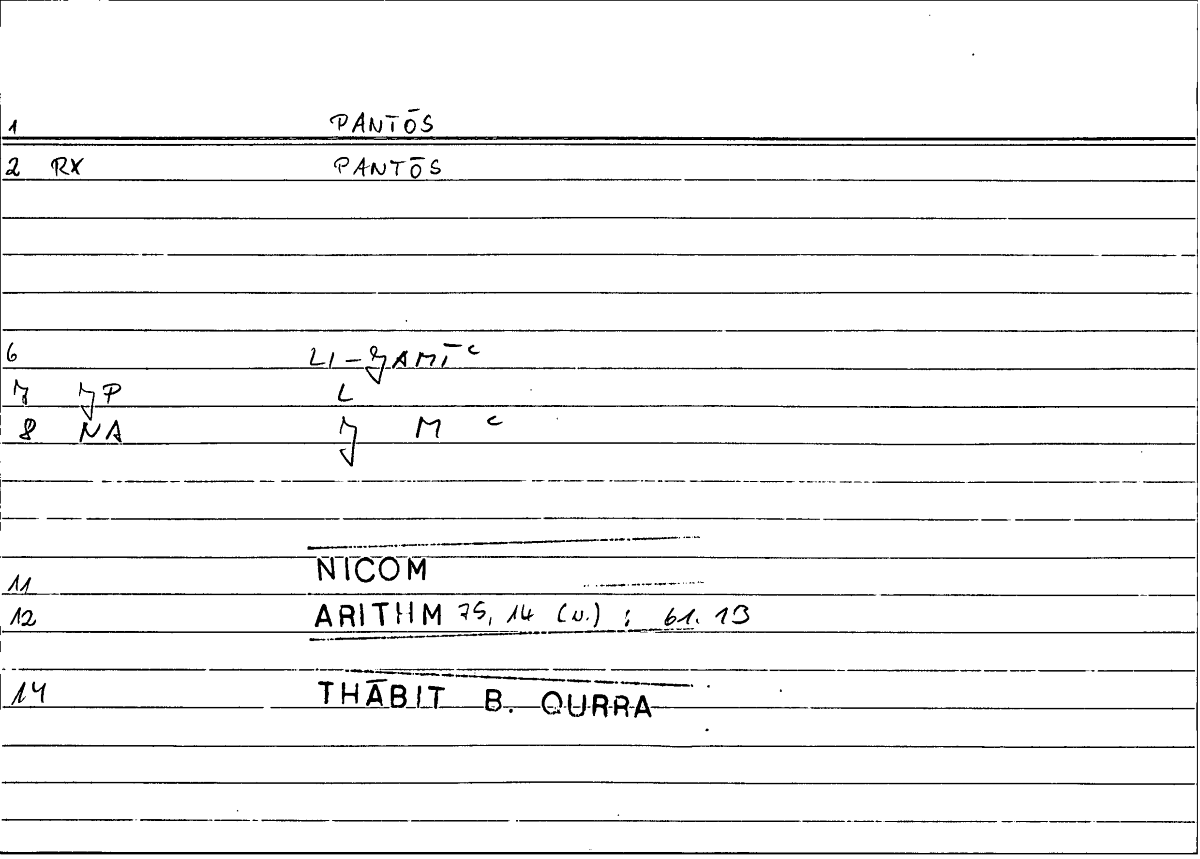 1 PANTŌS
2 RX PANTŌS
6 LI-ǮAMĪʿ
7 ǮP L
8 NA Ǯ M ʿ
11 NICOM
12 ARITHM 75, 14 (u.) ; 61. 13
14 THĀBIT B. QURRA